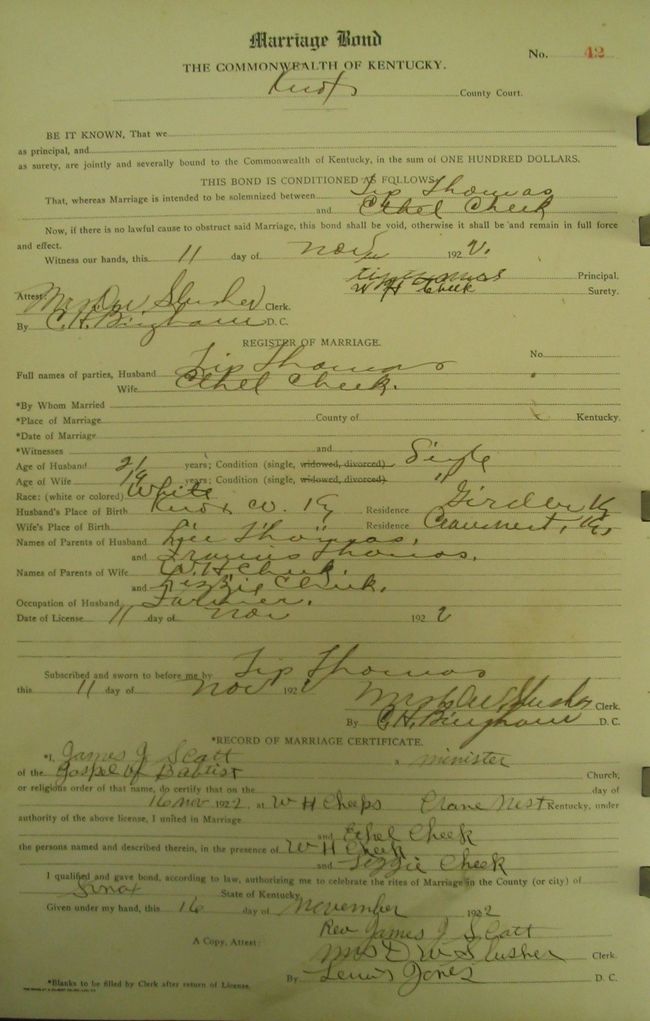 Marriage Bond
No. 42
THE COMMONWEALTH OF KENTUCKY.
Knox County Court.
BE IT KNOWN, That we
as principal, and
as surety, are jointly and severally bound to the Commonwealth of Kentucky, in the sum of ONE HUNDRED DOLLARS.
THIS BOND IS CONDITIONED AS FOLLOWS:
That, whereas Marriage is intended to be solemnized between Tip Thomas
and Ethel Cheek
Now, if there is no lawful cause to obstruct said Marriage, this bond shall be void, otherwise it shall be and remain in full force
and effect.
Witness our hands, this 11 day of Nov 1922.
Tip Thomas Principal.
W H Cheek Surety.
Attest:
Mrs D W Slusher Clerk.
By C. H. Bingham D. C.
REGISTER OF MARRIAGE.
No.
Full names of parties, Husband Tip Thomas
Wife Ethel Cheek.
*By Whom Married
*Place of Marriage County of Kentucky.
*Date of Marriage
*Witnesses and
Age of Husband 21 years; Condition (single, widowed, divorced) Single
Age of Wife 19 years; Condition (single, widowed, divorced) "
Race: (white or colored) White
Husband's Place of Birth Knox co. Ky Residence Girdler Ky
Wife's Place of Birth Residence Ky,
Names of Parents of Husband Thomas,
and Thomas.
Names of Parents of Wife W. H Cheek,
and Lizzie Cheek.
Occupation of Husband Farmer.
Date of License 11 day of Nov 1922
Subscribed and sworn to before me by Tip Thomas
this 11 day of Nov 192
Mrs D W Slusher Clerk.
By C. H. Bingham D. C.
*RECORD OF MARRIAGE CERTIFICATE.
*I, James J Scott a minister
of the Gospel of Baptist Church,
or religious order of that name, do certify that on the day of
16 nov 1922, at W H Cheeps Crane Nest Kentucky, under
authority of the above license, I united in Marriage
and Ethel Cheek
the persons named and described therein, in the presence of W H Cheek
and Lizzie Cheek
I qualified and gave bond, according to law, authorizing me to celebrate the rites of Marriage in the County (or city) of
Knox State of Kentucky.
Given under my hand, this 16 day of November 1922
Rev James J Scott
A Copy, Attest: Mrs D W Slusher Clerk.
By Lewis Jones D. C.
*Blanks to be filled by Clerk after return of License.